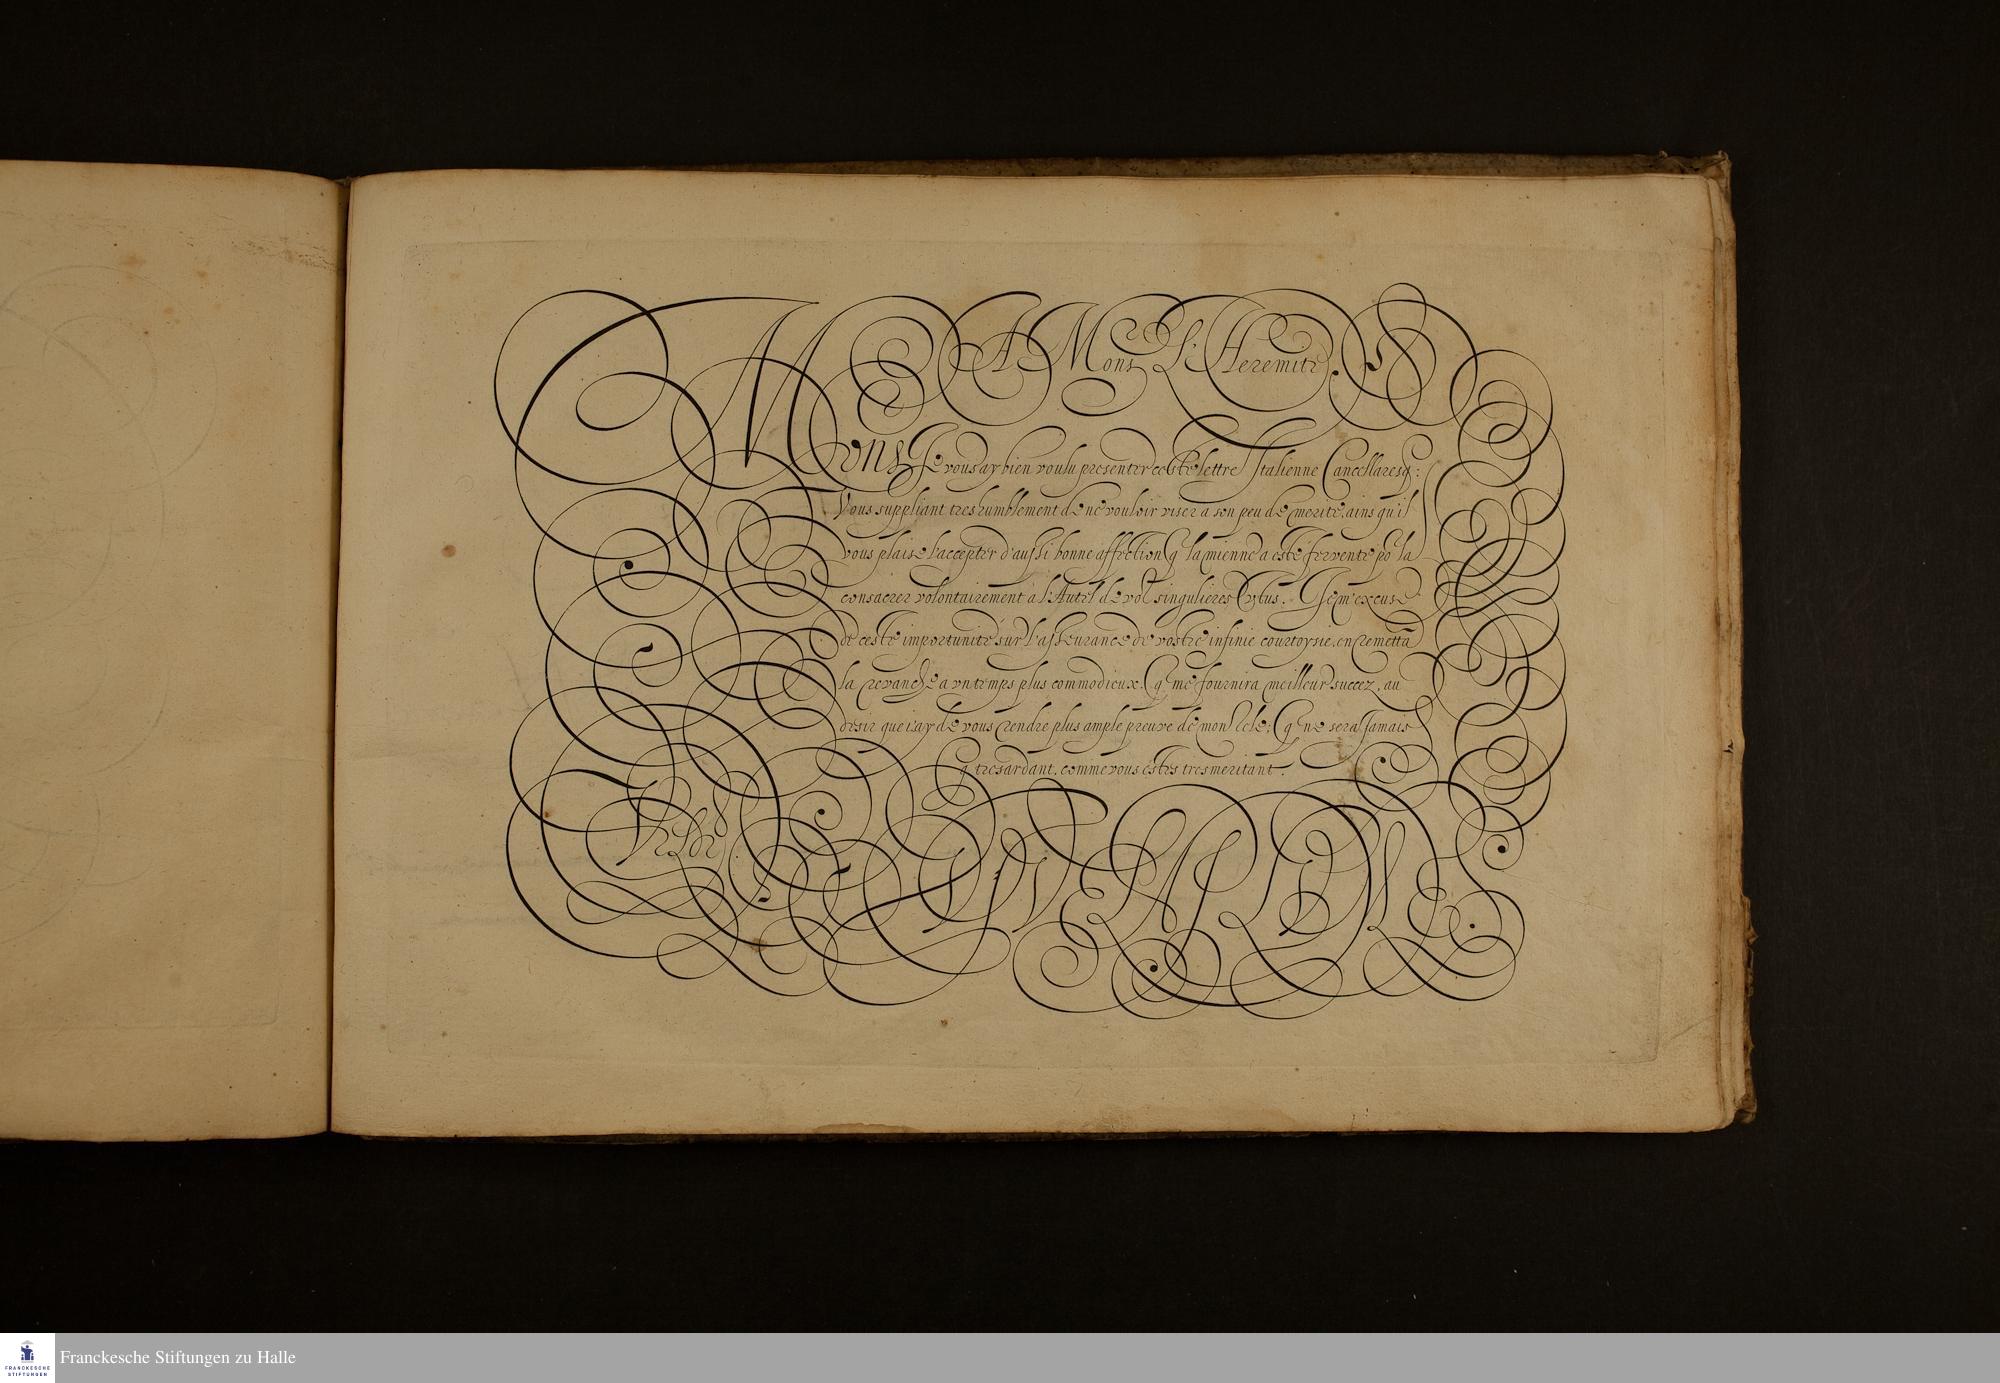 A Mons S.r Heremite.
Mons.r Je vous ay bien voulu presenter ceste lettre Italienne Cancellaresq:
Vous suppliant treshumblement de ne vouloir viser a son peu de merite, ains qu'il
vous plaise l'accepter d'aussi bonne affection q la mienne a esté fervente po.r la
consacrer volontairement a l'Autel de voz singulieres Vertus. Je m'excuse
de ceste importunité sur l'asseurance de vostre infinie courtoysie, en remettā
la revanche a vn temps plus commodieux, q me fournira meilleur succez, au
desir que i'ay de vous rendre plus ample preuve de mon zele; q ne sera jamais
q tresardant, comme vous estes tresmeritant.
Franckesche Stiftungen zu Halle
FRANCKESCHE
STIFTUNGEN